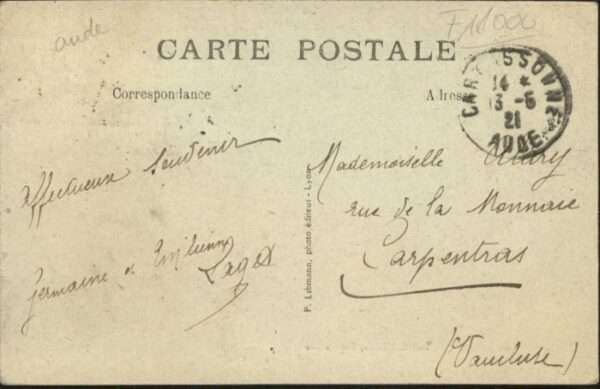 aude
F11000
CARTE POSTALE
Correspondance
Adresse
CARCASSONNE
14 *
13 - 6
21
AUDE
Affectueux Souvenir
Germaine et Emilienne
P. Lehmann, photo éditeur - Lyon
Mademoiselle
rue de la Monnaie
Carpentras
(Vaucluse)